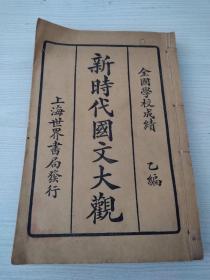 全國學校成績 乙編
新時代國文大觀
上海世界書局發行